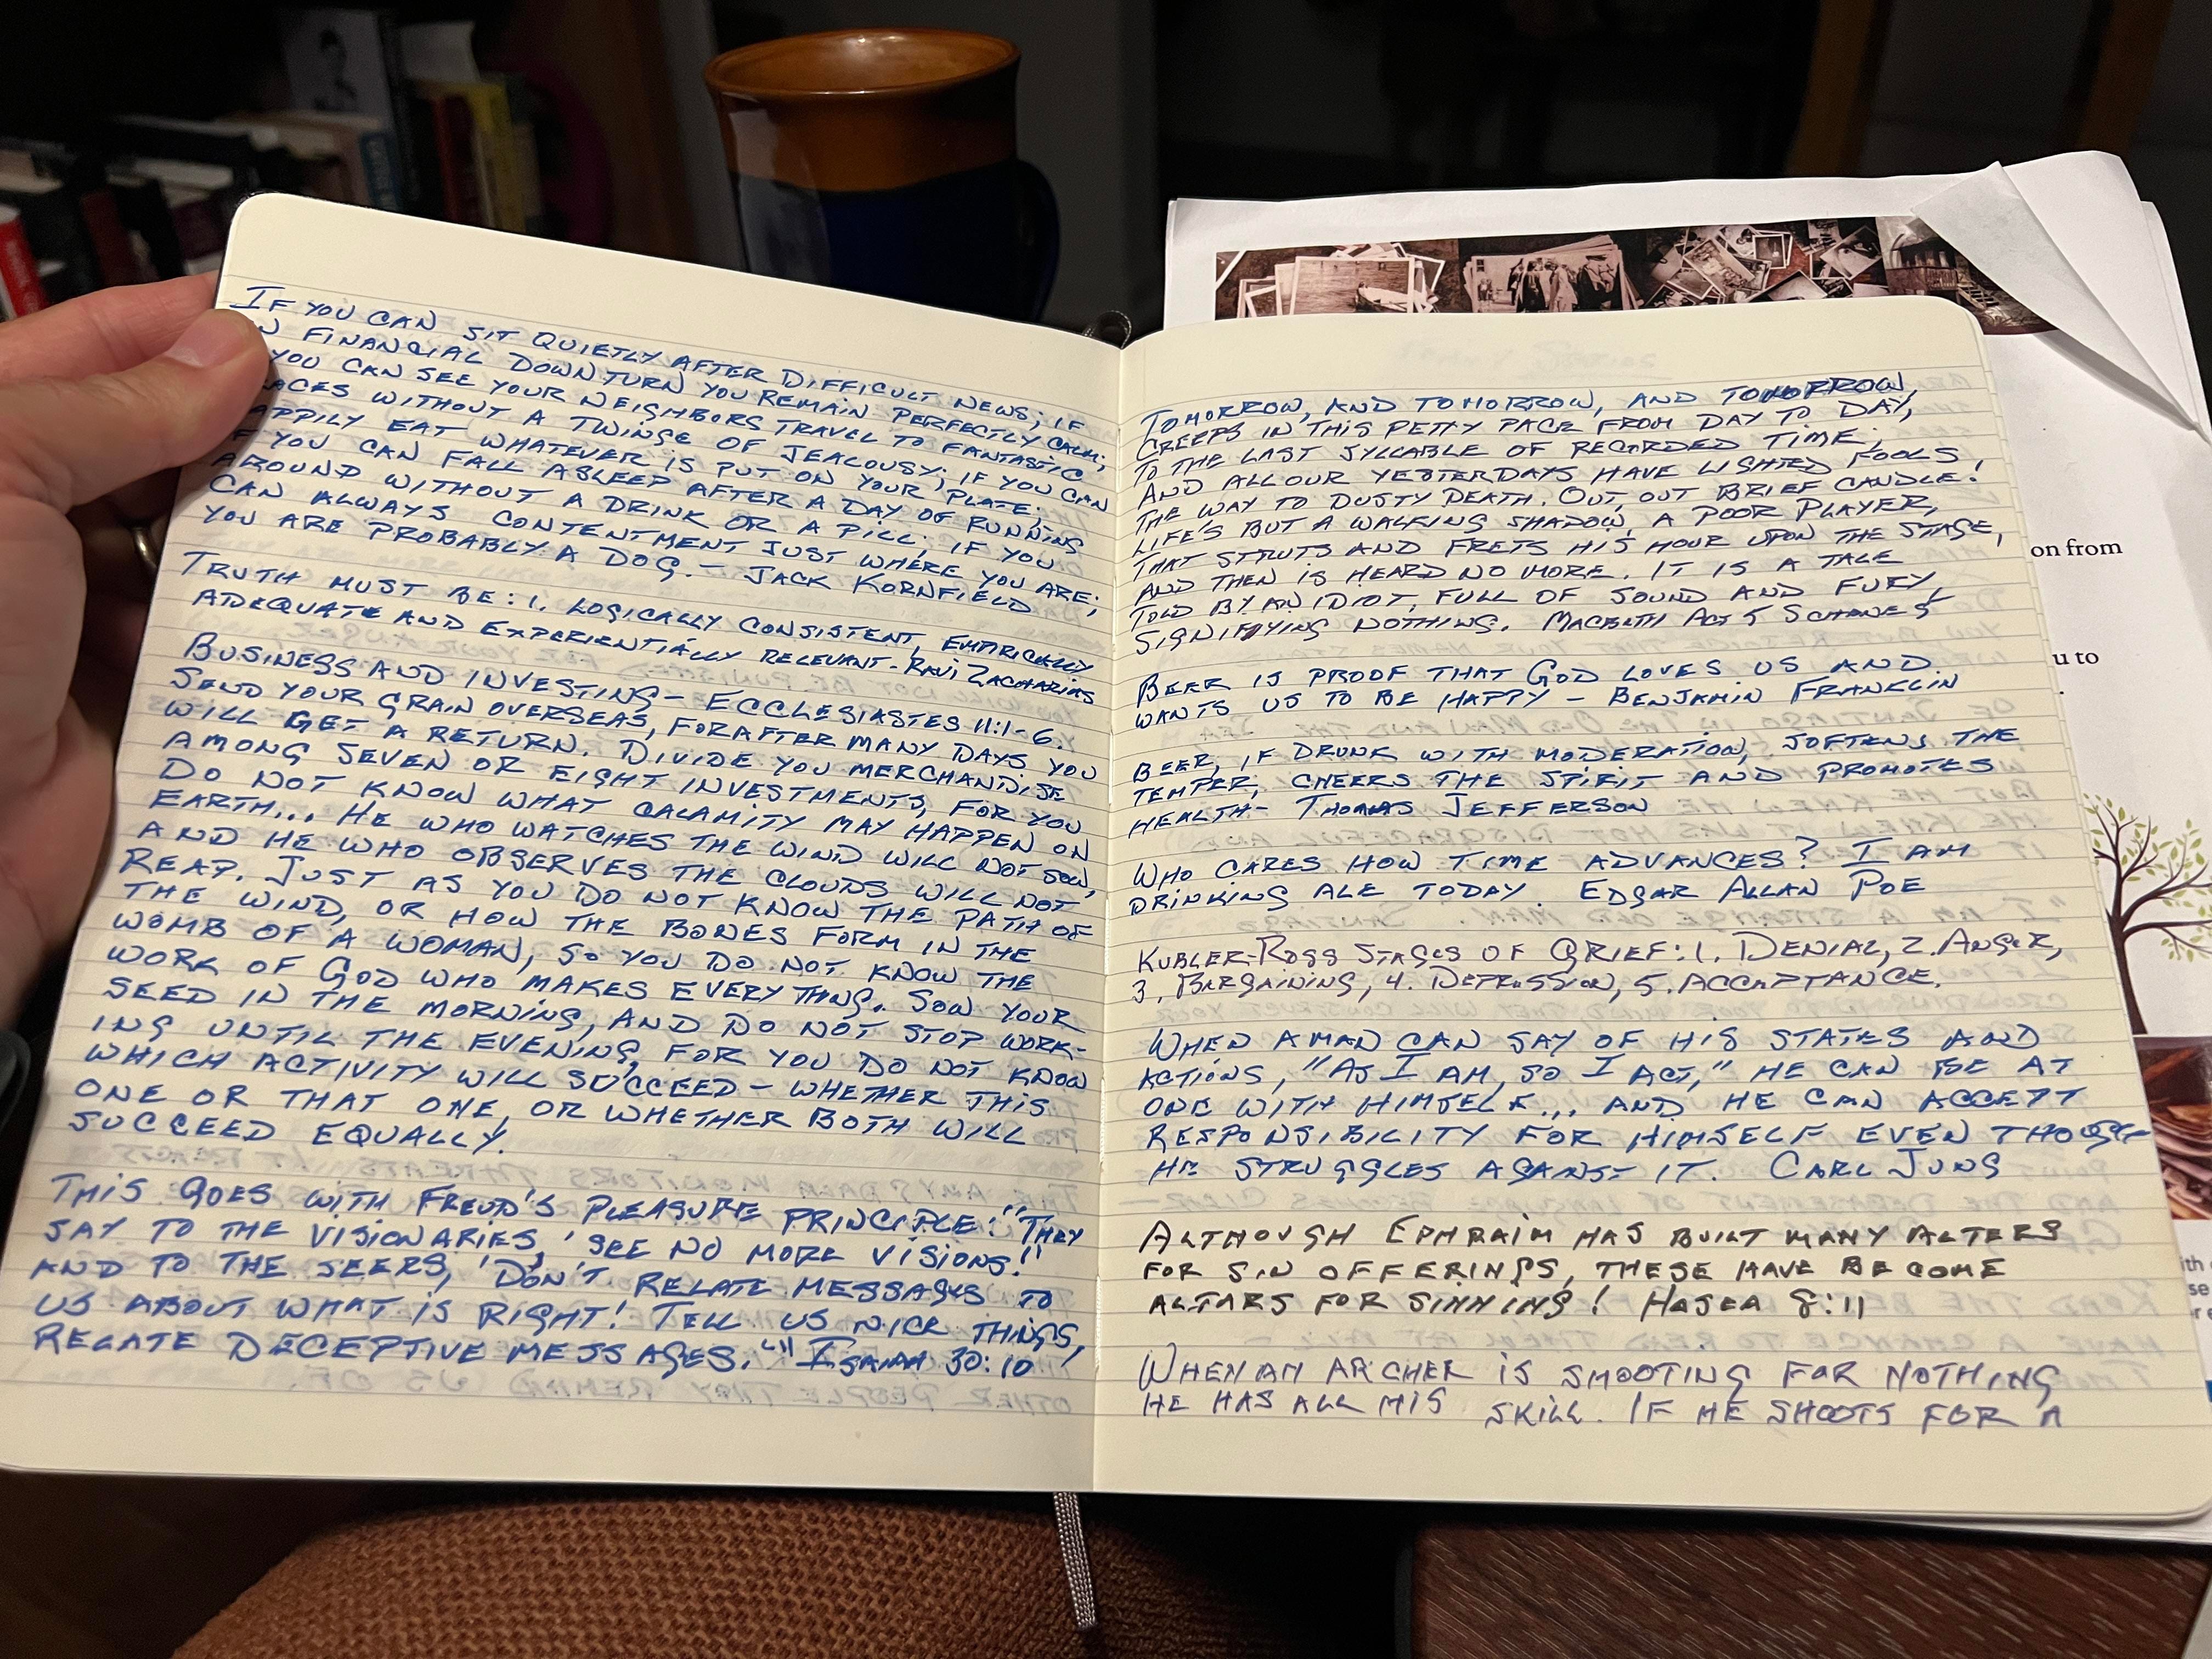 If you can sit quietly after difficult news; if
in financial downturn you remain perfectly calm;
you can see your neighbors travel to fantastic
without a twinge of jealousy; if you can
eat whatever is put on your plate;
you can fall asleep after a day of running
around without a drink or a pill; if you
can always contentment just where you are;
you are probably a dog. - Jack Kornfield
Truth must be: 1. logically consistent, empirically
adequate and experientially relevant - Ravi Zacharias
Business and investing - Ecclesiastes 11:1-6.
Send your grain overseas, for after many days you
will get a return. Divide you merchandise
among seven or eight investments, for you
do not know what calamity may happen on
earth... He who watches the wind will not sow,
and he who observes the clouds will not
reap. Just as you do not know the path of
the wind, or how the bones form in the
womb of a woman, so you do not know the
work of God who makes everything. Sow your
seed in the morning, and do not stop work-
ing until the evening, for you do not know
which activity will succeed - whether this
one or that one, or whether both will
succeed equally.
This goes with Freud's pleasure principle: "They
say to the visionaries, 'see no more visions!'
and to the seers, 'Don't relate messages to
us about what is right! Tell us nice things,
relate deceptive messages.'" Isaiah 30:10
Tomorrow, and tomorrow, and tomorrow,
creeps in this petty pace from day to day,
to the last syllable of recorded time;
and all our yesterdays have lighted fools
the way to dusty death. Out, out brief candle!
Life's but a walking shadow, a poor player,
that struts and frets his hour upon the stage,
and then is heard no more. It is a tale
told by an idiot, full of sound and fury,
signifying nothing. Macbeth Act 5 Scene 5
Beer is proof that God loves us and
wants us to be happy - Benjamin Franklin
Beer, if drunk with moderation, softens the
temper, cheers the spirit and promotes
health - Thomas Jefferson
Who cares how time advances? I am
drinking ale today. Edgar Allan Poe
Kubler-Ross Stages of Grief: 1. Denial, 2. Anger,
3. Bargaining, 4. Depression, 5. Acceptance.
When a man can say of his states and
actions, "As I am, so I act," he can be at
one with himself... and he can accept
responsibility for himself even though
he struggles against it. Carl Jung
Although Ephraim has built many alters
for sin offerings, these have become
altars for sinning! Hosea 8:11
When an archer is shooting for nothing
he has all his skill. If he shoots for a
on from
u to